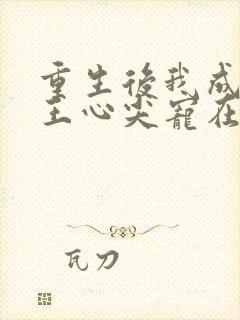 重生後我成
王心尖寵在
瓦刀